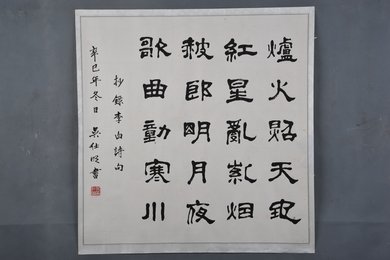 爐火照天地
紅星亂紫烟
赧郎明月夜
歌曲動寒川
抄錄李白詩句
辛巳年冬日 吴仕 書